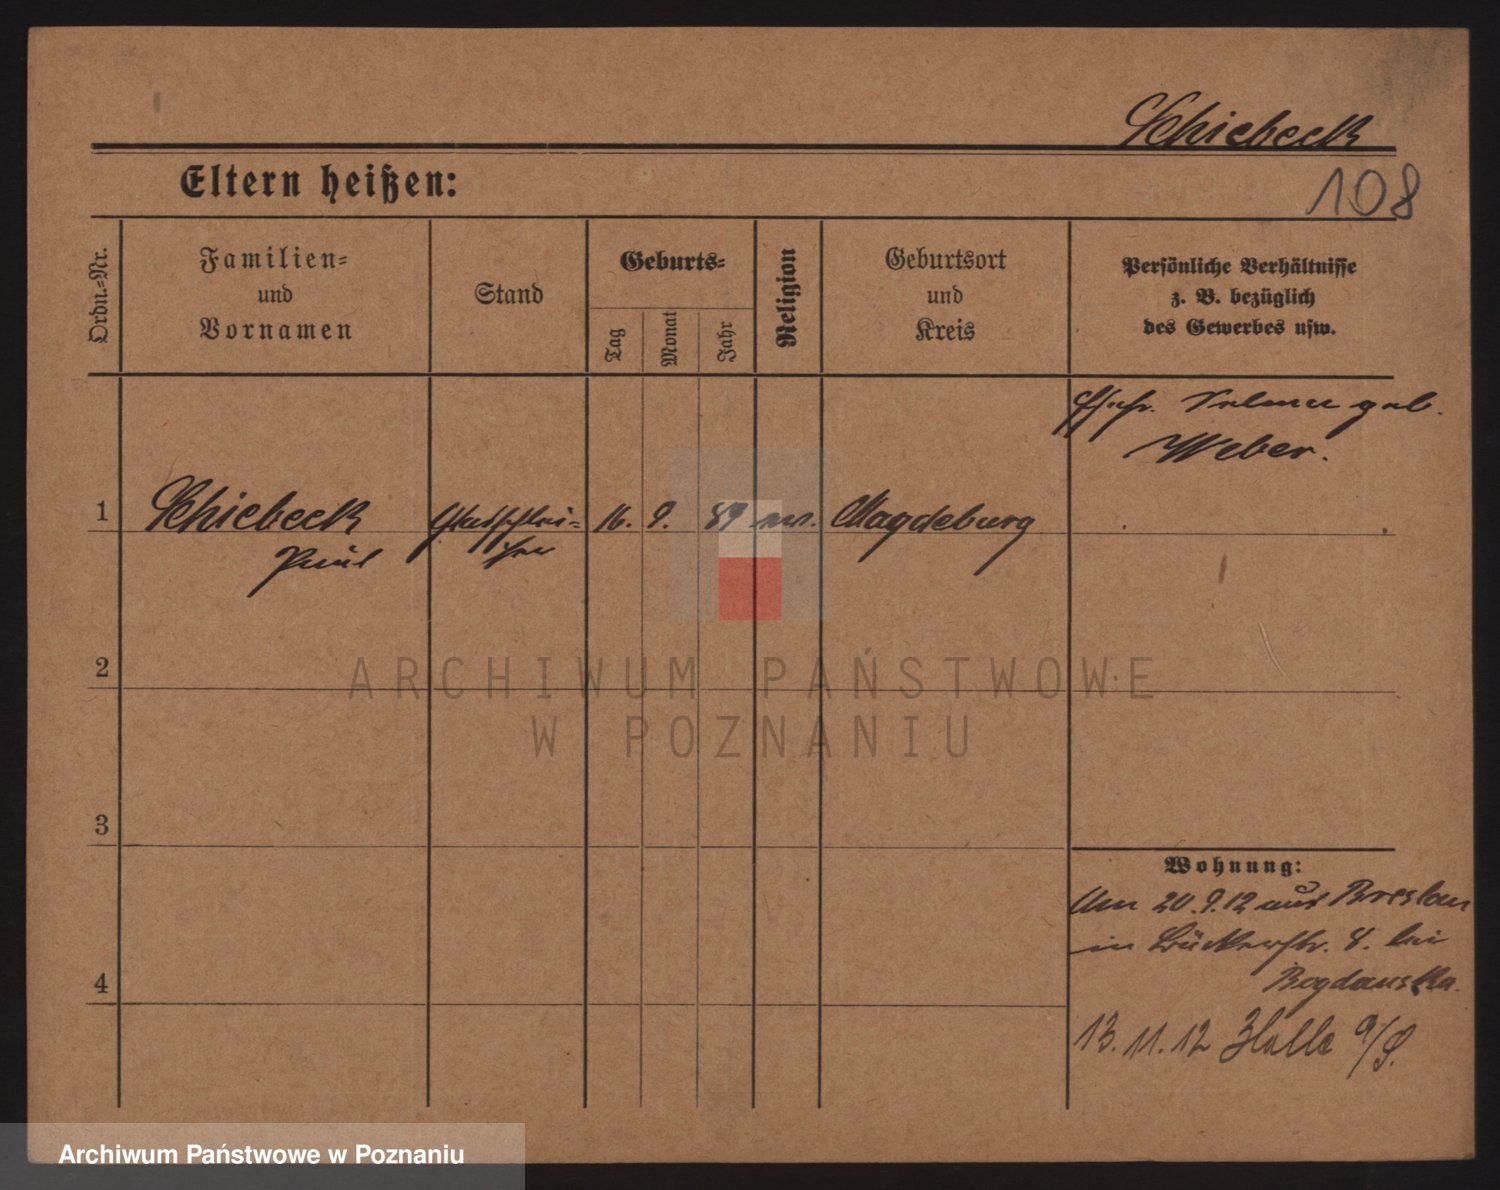 Schiebeck
108
Eltern heißen:
Ordn.-Nr.
Familien-
und
Vornamen
Stand
Geburts-
Tag
Monat
Jahr
Religion
Geburtsort
und
Kreis
Persönliche Verhältnisse
z. B. bezüglich
des Gewerbes usw.
geb.
Weber.
1
Schiebeck
Paul
Glasschlei-
fer
16. 9. 89
Magdeburg
2
3
4
ARCHIWUM PAŃSTWOWE
W POZNANIU
Wohnung:
Am 20.9.12 aus Breslau
in 8. bei
Bogdanska.
13. 11. 12 Halle a/S.
Archiwum Państwowe w Poznaniu